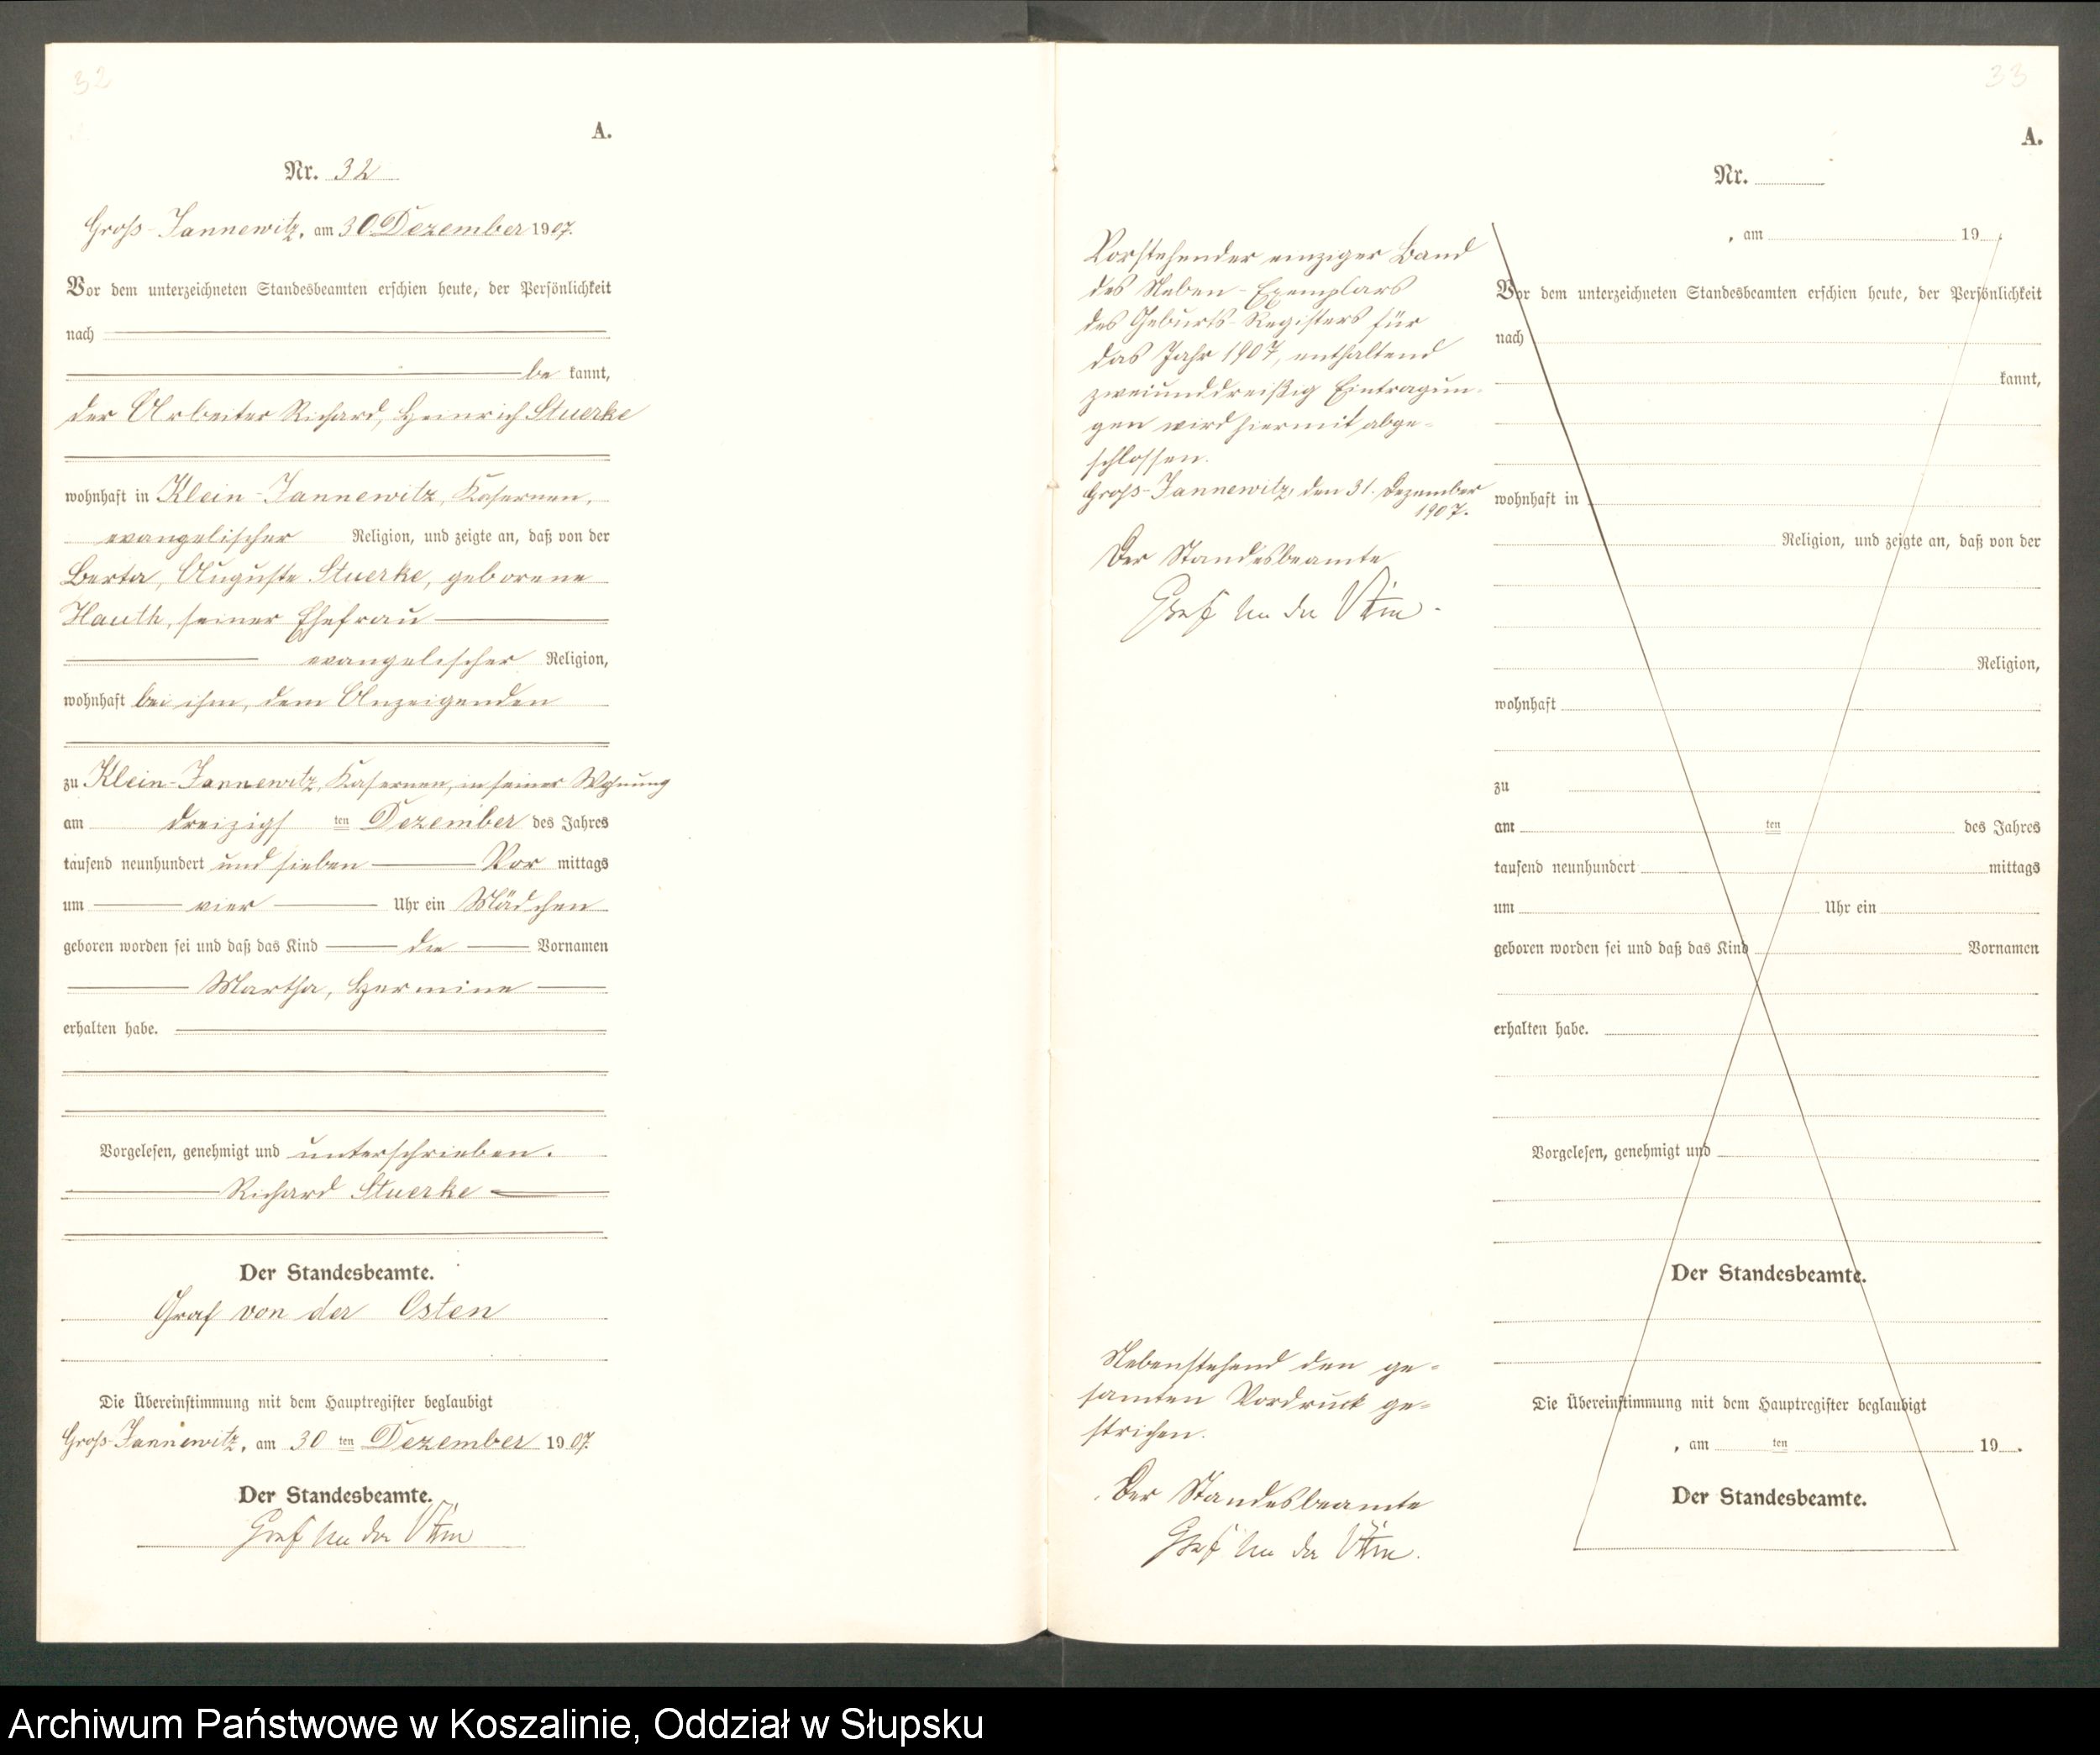 32
A.
Nr. 32
Groß-Jannewitz, am 30. Dezember 1907.
Vor dem unterzeichneten Standesbeamten erschien heute, der Persönlichkeit
nach
be kannt,
der Arbeiter Richard, Heinrich Stuerke
wohnhaft in Klein-Jannewitz, Kasernen,
evangelischer Religion, und zeigte an, daß von der
Berta, Auguste Stuerke, geborene
Hauth, seiner Ehefrau
evangelischer Religion,
wohnhaft bei ihm, dem Anzeigenden
zu Klein-Jannewitz, Kasernen, in seiner Wohnung
am dreizigs ten Dezember des Jahres
tausend neunhundert und sieben Vor mittags
um vier Uhr ein Mädchen
geboren worden sei und daß das Kind die Vornamen
Martha, Hermine
erhalten habe.
Vorgelesen, genehmigt und unterschrieben.
Richard Stuerke
Der Standesbeamte.
Graf von der Osten
Die Übereinstimmung mit dem Hauptregister beglaubigt
Groß-Jannewitz, am 30 ten Dezember 1907.
Der Standesbeamte.
Graf von der Osten
33
Vorstehender einziger Band
des Neben-Exemplars
des Geburts-Registers für
das Jahr 1907, enthaltend
zweiunddreißig Eintragun-
gen wird hiermit abge-
schlossen.
Groß-Jannewitz, den 31. Dezember
1907.
Der Standesbeamte
Graf von der Osten.
Nebenstehend den ge-
samten Vordruck ge-
strichen.
Der Standesbeamte
Graf von der Osten.
A.
Nr.
, am 19 .
Vor dem unterzeichneten Standesbeamten erschien heute, der Persönlichkeit
nach
kannt,
wohnhaft in
Religion, und zeigte an, daß von der
Religion,
wohnhaft
zu
am ten des Jahres
tausend neunhundert mittags
um Uhr ein
geboren worden sei und daß das Kind Vornamen
erhalten habe.
Vorgelesen, genehmigt und
Der Standesbeamte.
Die Übereinstimmung mit dem Hauptregister beglaubigt
, am ten 19 .
Der Standesbeamte.
Archiwum Państwowe w Koszalinie, Oddział w Słupsku